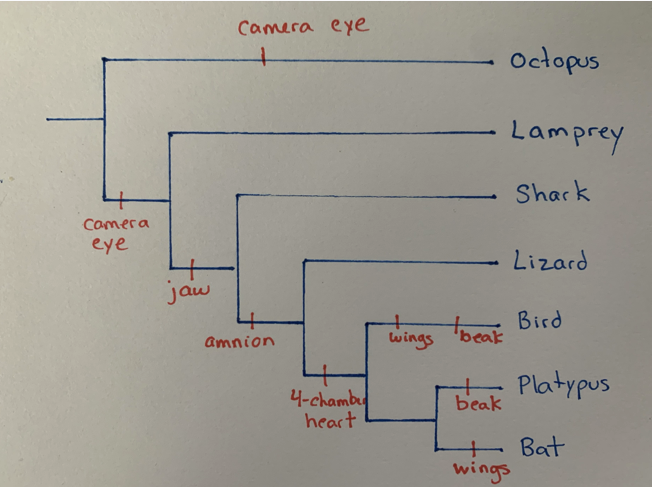 camera eye
Octopus
Lamprey
Shark
camera
eye
jaw
Lizard
amnion
Bird
wings
beak
4-chambe
heart
Platypus
beak
Bat
wings